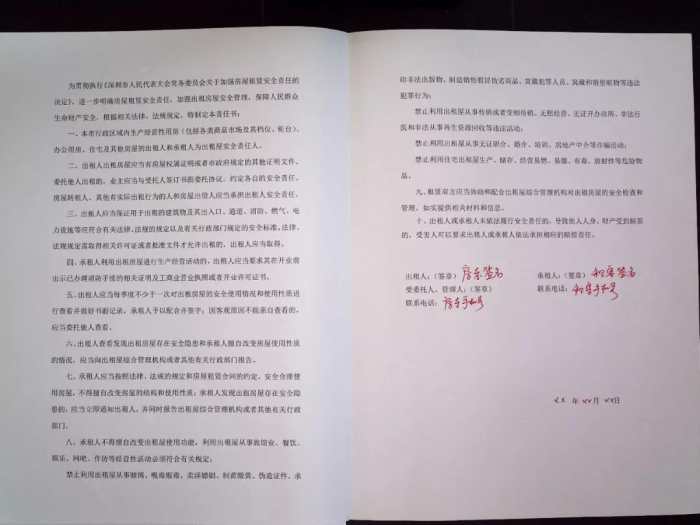 为贯彻执行《深圳市人民代表大会常务委员会关于加强房屋租赁安全责任的
决定》，进一步明确房屋租赁安全责任，加强出租房屋安全管理，保障人民群众
生命财产安全，根据相关法律、法规规定，特制定本责任书：
一、本市行政区域内生产经营性用房（包括各类商品市场及其档位、柜台）、
办公用房、住宅及其他房屋的出租人和承租人为出租屋安全责任人。
二、出租人出租房屋应当有房屋权属证明或者市政府规定的其他证明文件。
委托他人出租的，业主应当与受托人签订书面委托协议，约定各自的安全责任。
房屋转租人、其他有实际出租行为的人和房屋出借人应当承担出租人安全责任。
三、出租人应当保证用于出租的建筑物及其出入口、通道、消防、燃气、电
力设施等应符合有关法律、法规的规定以及有关行政部门规定的安全标准。法律、
法规规定需取得相关许可证或者批准文件才允许出租的，出租人应当取得。
四、承租人利用出租房屋进行生产经营活动的，出租人应当要求其在开业前
出示已办理消防手续的相关证明及工商业营业执照或者开业许可证书。
五、出租人应当每季度不少于一次对出租房屋的安全使用情况和使用性质进
行查看并做好书面记录，承租人予以配合并签字；因客观原因不能亲自查看的，
应当委托他人查看。
六、出租人查看发现出租房屋存在安全隐患和承租人擅自改变房屋使用性质
的情况，应当向出租屋综合管理机构或者其他有关行政部门报告。
七、承租人应当按照法律、法规的规定和房屋租赁合同的约定，安全合理使
用房屋，不得擅自改变房屋的结构和使用性质；承租人发现出租房屋存在安全隐
患的，应当立即通知出租人，并同时报告出租屋综合管理机构或者其他有关行政
部门。
八、承租人不得擅自改变出租屋使用功能，利用出租屋从事旅业、餐饮、
娱乐、网吧、作坊等经营性活动必须符合有关规定；
禁止利用出租屋从事赌博、吸毒贩毒、卖淫嫖娼、制黄贩黄、伪造证件、承
印非法出版物、制造销售假冒伪劣商品、窝藏犯罪人员、窝藏和销赃赃物等违法
犯罪行为；
禁止利用出租屋从事传销或者变相传销、无照经营、无证开办诊所、非法行
医和非法从事再生资源回收等违法活动；
禁止利用出租屋从事无证职介、婚介、培训、房地产中介等诈骗活动；
禁止利用住宅出租屋生产、储存、经营易燃、易爆、有毒、放射性等危险物
品。
九、租赁双方应当协助和配合出租屋综合管理机构对出租房屋的安全检查和
管理，如实提供相关材料和信息。
十、出租人或承租人未依法履行安全责任的，导致他人人身、财产受到损害
的，受害人可以要求出租人或承租人依法承担相应的赔偿责任。
出租人：（签章） 房东签名 承租人：（签章） 租客签名
受委托人、管理人：（签章） 联系电话： 租客手机号
联系电话： 房东手机号
XX 年 XX 月 XX 日